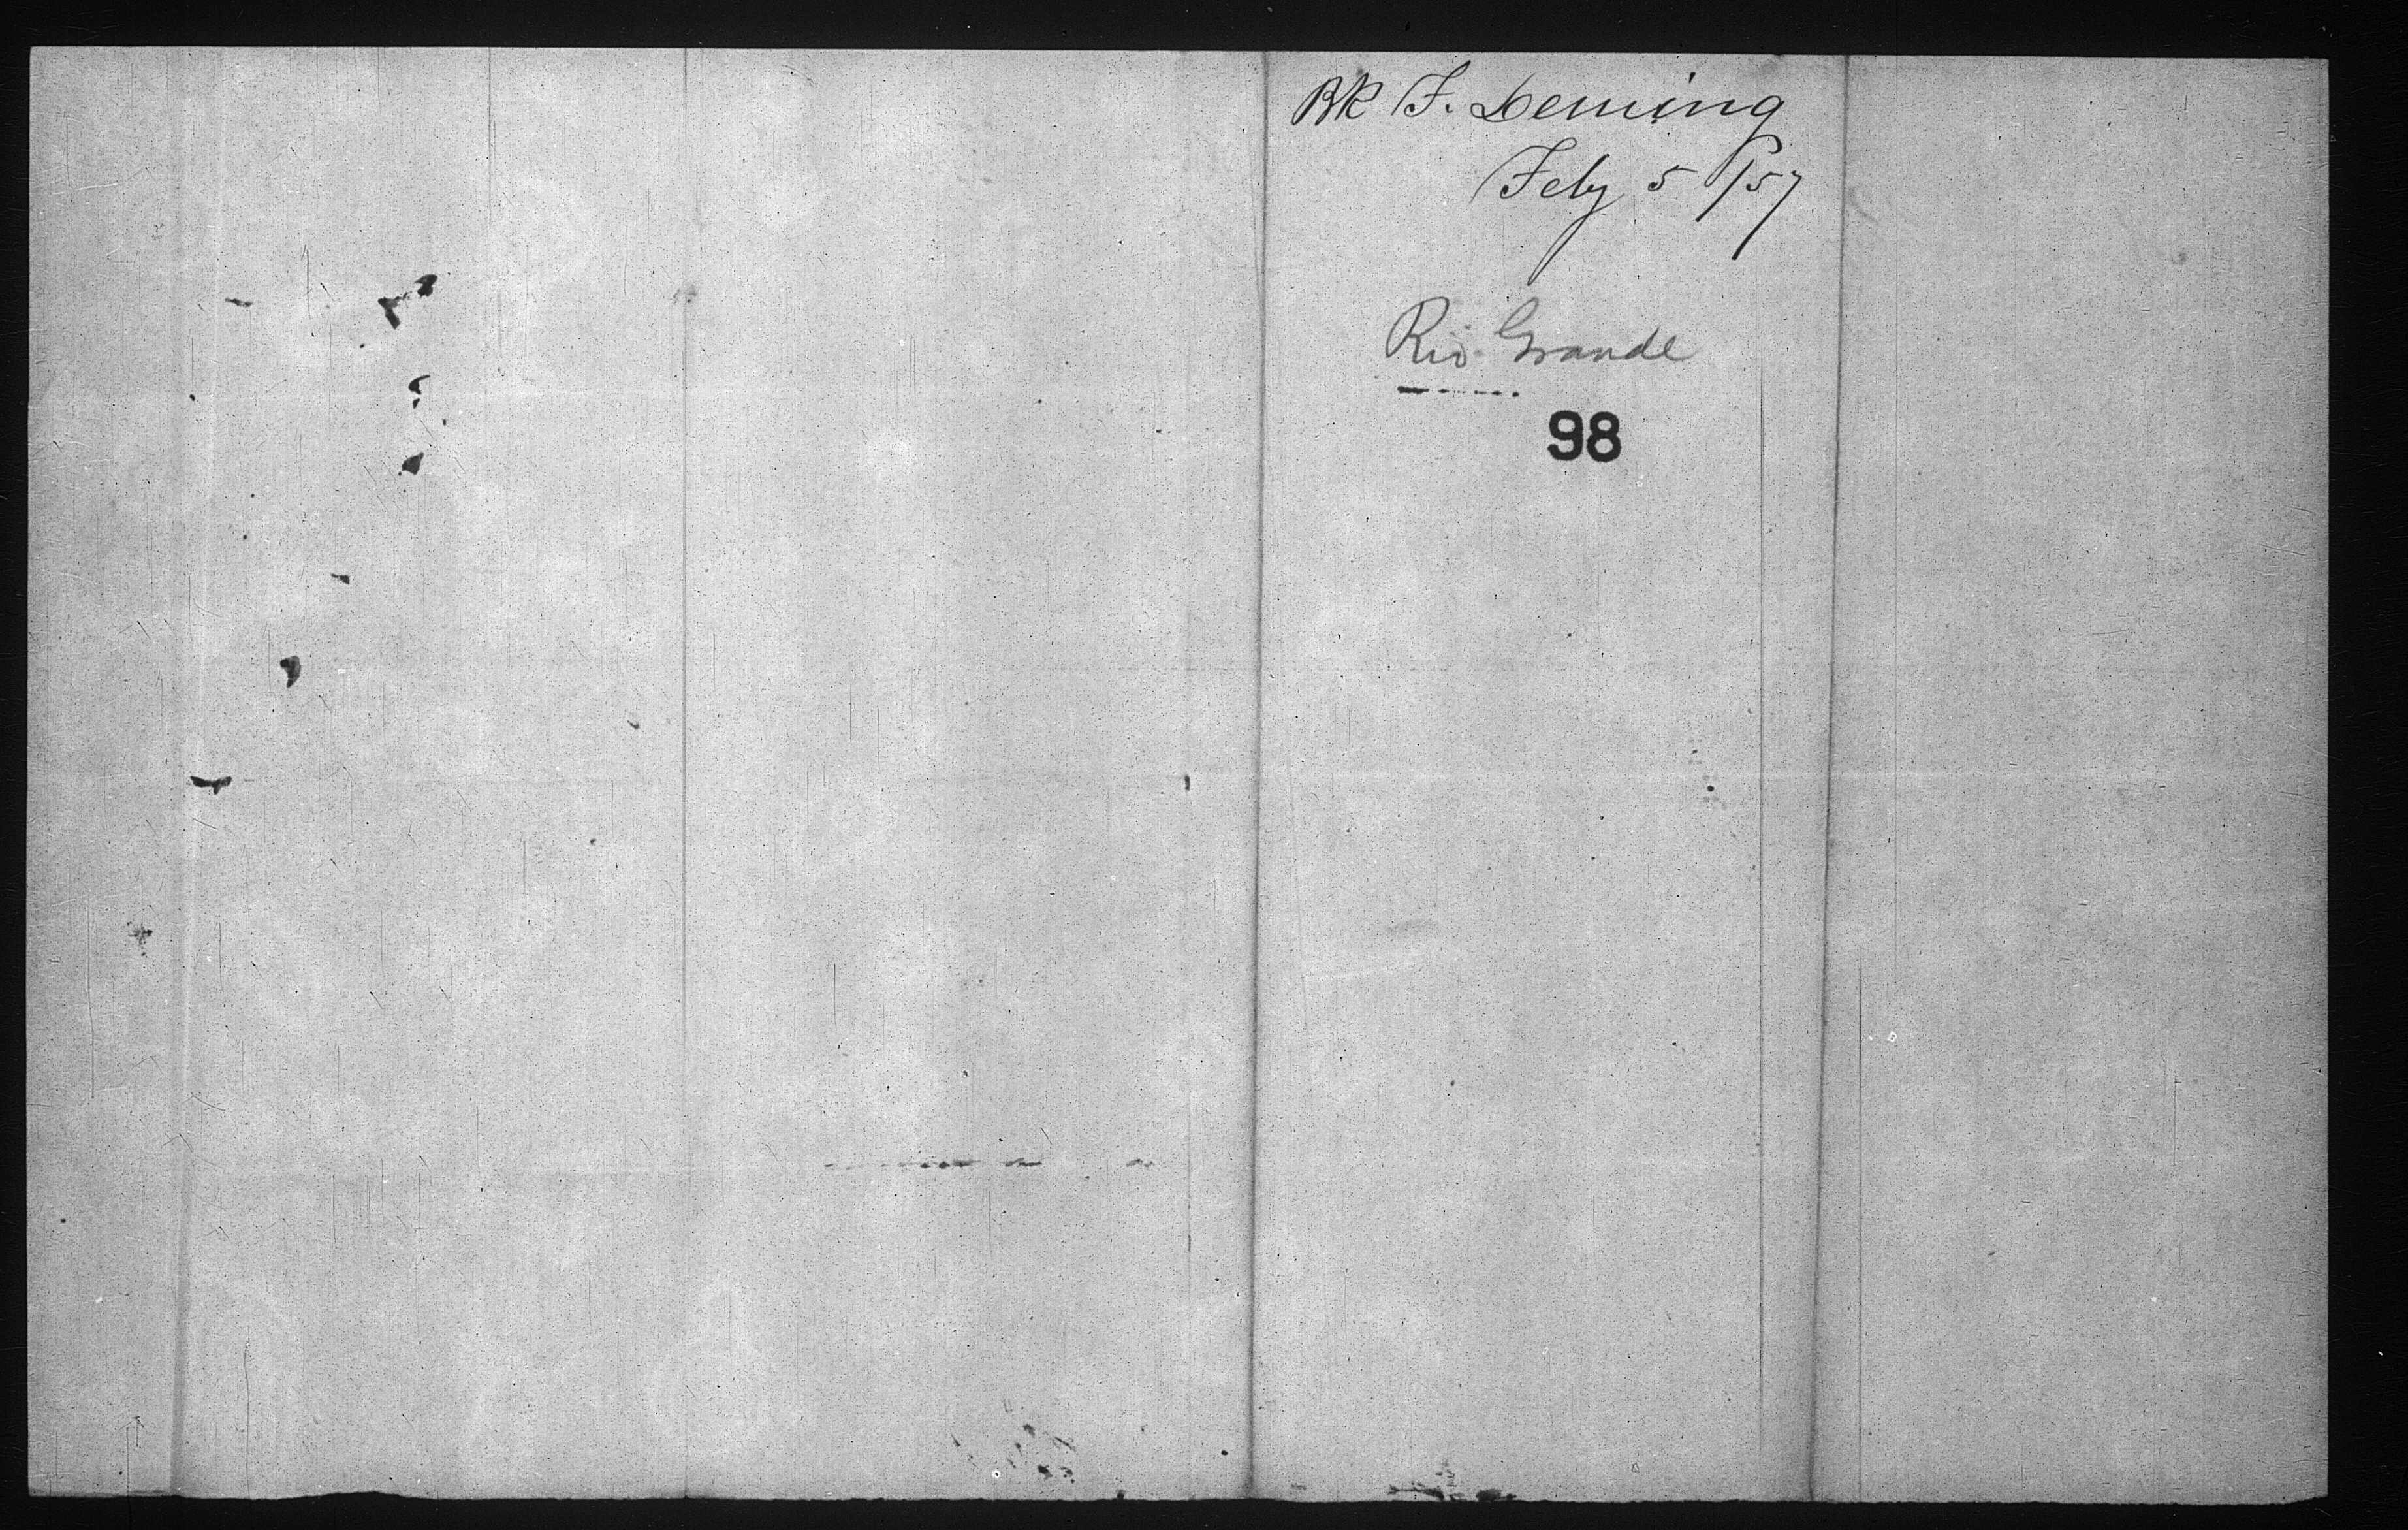 Bk F. Deming
Feby 5 /57
Rio Grande
98